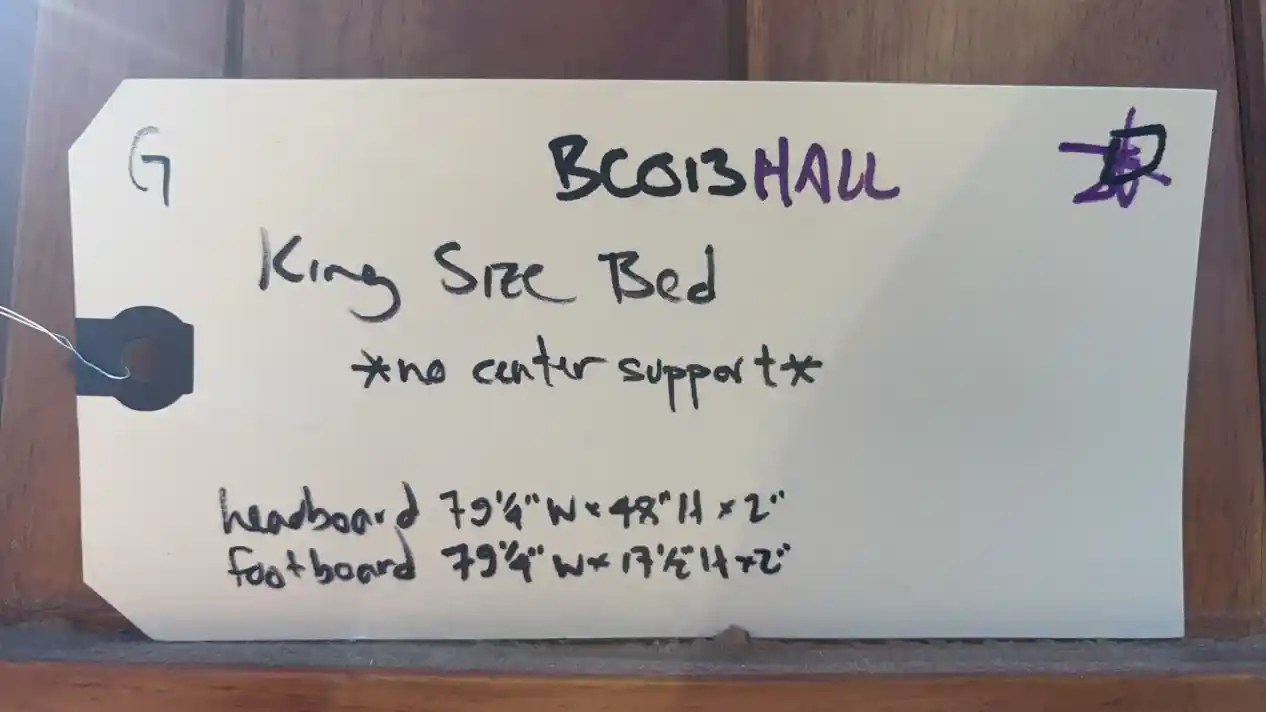 G BCO13HALL
King Size Bed
*no center support*
headboard 79¼" W × 48" H × 2"
footboard 79¼" W × 17½" H × 2"